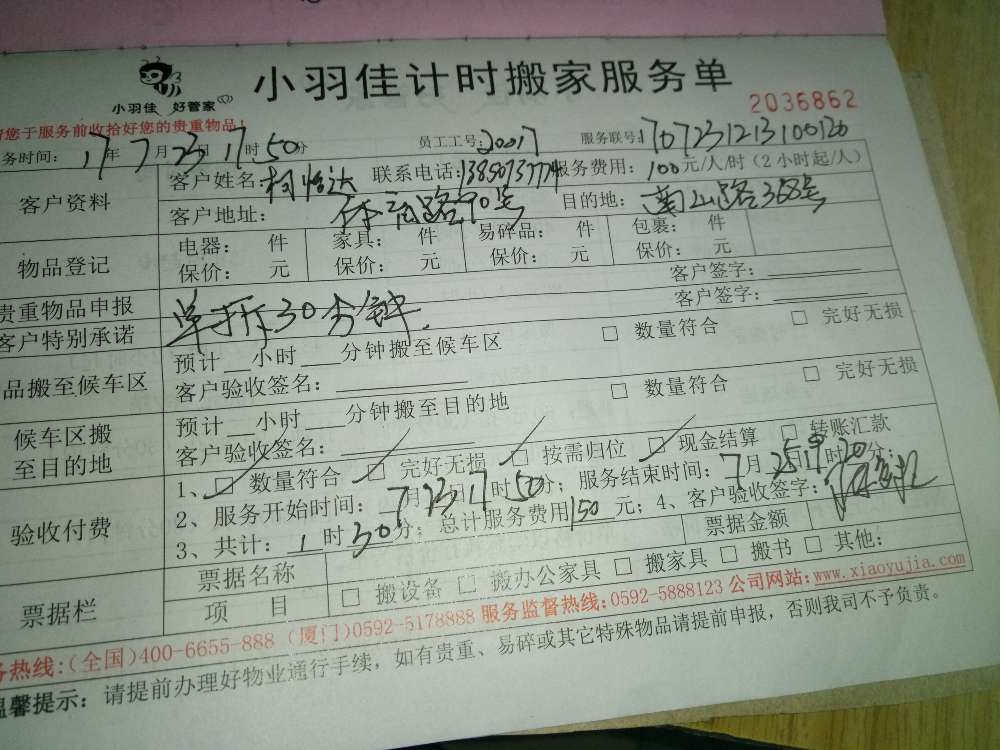 小羽佳 好管家
小羽佳计时搬家服务单
2036862
您于服务前收拾好您的贵重物品!
务时间: 17年7月23日17时50分 员工工号: 20017 服务联号: 1707231213100120
客户资料 客户姓名: 柯怡达 联系电话: 服务费用: 100元/人/时(2小时起/人)
客户地址: 路90号 目的地: 南山路368号
物品登记 电器: 件 家具: 件 易碎品: 件 包裹: 件
保价: 元 保价: 元 保价: 元 保价: 元
贵重物品申报 客户签字:
客户特别承诺 单拆30分钟. 客户签字:
品搬至候车区 预计__小时___分钟搬至候车区 □ 数量符合 □ 完好无损
客户验收签名:
候车区搬至目的地 预计__小时___分钟搬至目的地 □ 数量符合 □ 完好无损
客户验收签名:
验收付费 1、□ 数量符合 □ 完好无损 □ 按需归位 □ 现金结算 □ 转账汇款
2、服务开始时间: 7月23日17时50分; 服务结束时间: 7月25日19时20分;
3、共计: 1时30分; 总计服务费用150元; 4、客户验收签字:
票据栏 票据名称 票据金额
项 目 □ 搬设备 □ 搬办公家具 □ 搬家具 □ 搬书 □ 其他:
务热线:(全国)400-6655-888 (厦门)0592-5178888 服务监督热线:0592-5888123 公司网站:www.xiaoyujia.com
温馨提示: 请提前办理好物业通行手续,如有贵重、易碎或其它特殊物品请提前申报,否则我司不予负责。